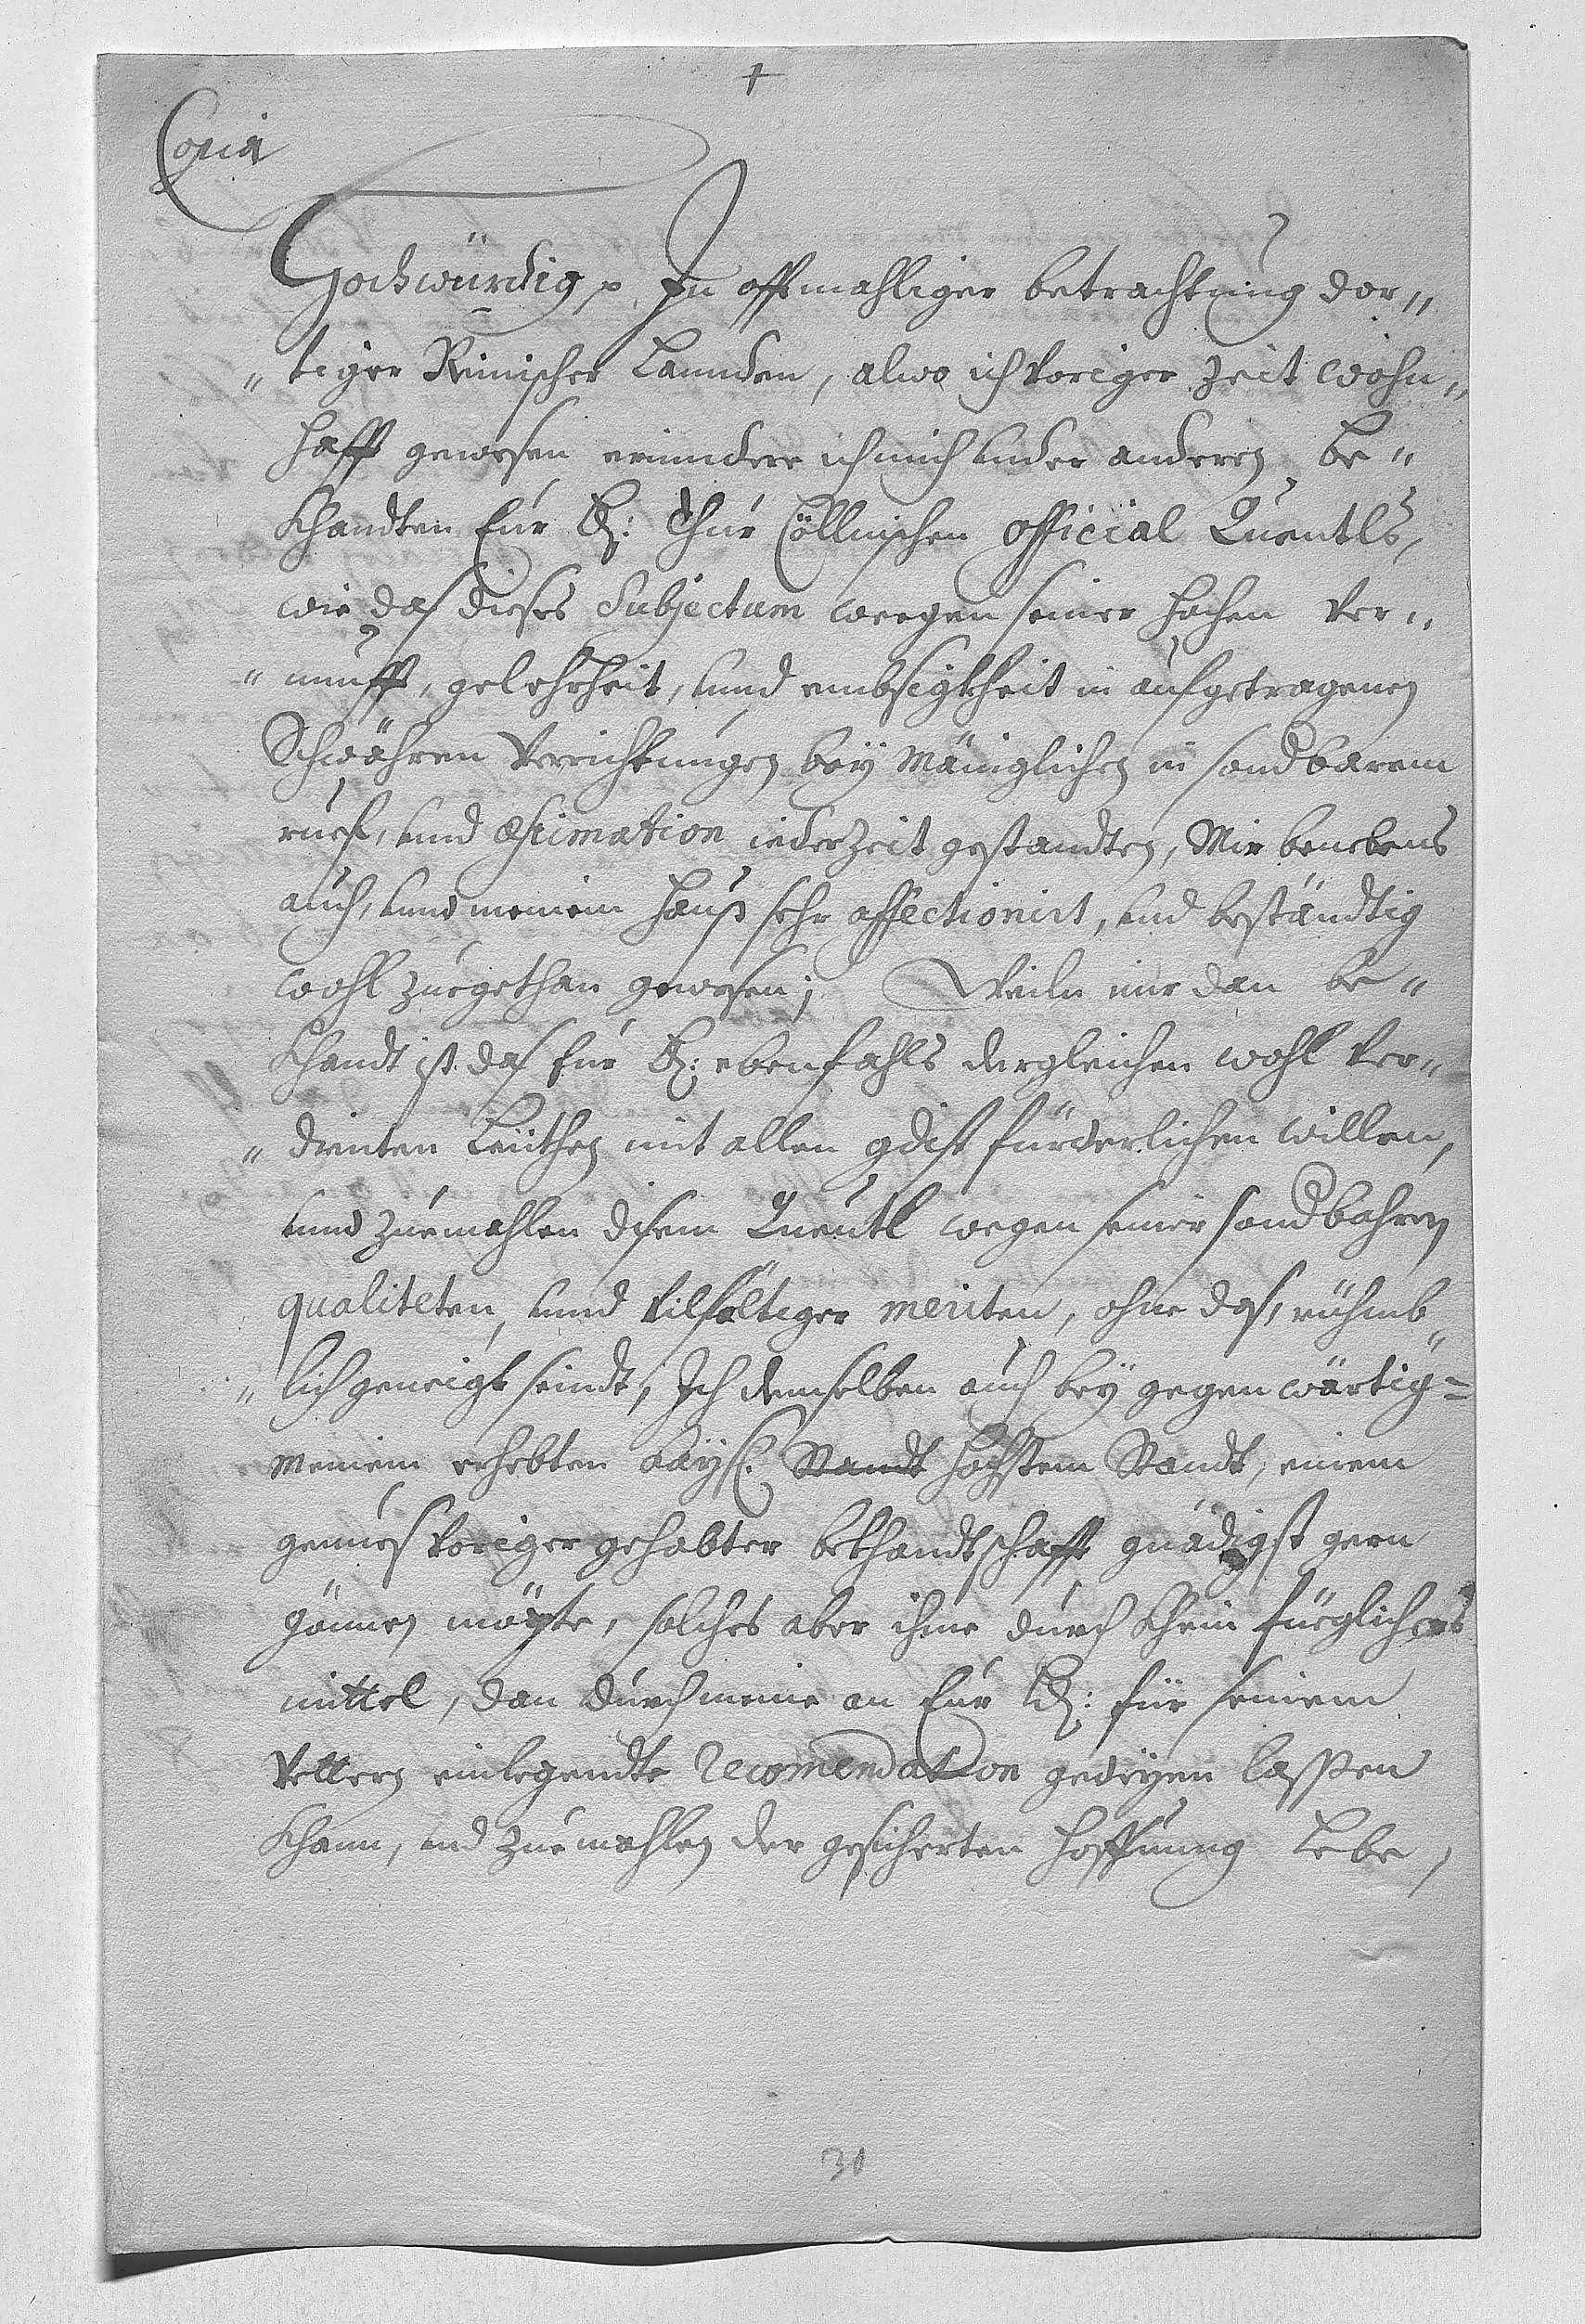 +
Copia
Hochwürdig p. In offtmahliger betrachtung dor„
„tiger Reinischer Lannden, alwo ich voriger Zeit wohn„
hafft gewesen, erinndere ich mich under anderen be„
khandten Eur L: Chur Cöllnischen Official Quentls,
wie das dieses Subjectum weegen seiner hochen ver„
„nunfft, gelehrheit, unnd embsigkheit in aufgetragenen
Schwähren Verrichtungen bey Mäniglichen in sondbarem
ruef, und æstimation iederzeit gestandten, Mir benebens
auch, unnd meinem Hauß sehr affectionirt, und beständtig
wohl zuegethan gewesen; Weiln mir dan be„
khandt ist das Eur L: ebenfahls dergleichen wohl ver„
„dienten Leüthen mit allen gdist fürderlichen willen,
unnd zuemahlen disem Quentl wegen seiner sondbahren
qualiteten, unnd vilfältiger meriten, ohne das, rühmb„
„lich geneigt seindt, Ich demselben auch bey gegenwärtig=
meinem erhebten Kays. Standt höchstem Standt, einem
genues voriger gehabter bekhandtschafft gnädigst gern
gönnen möchte, solches aber ihme durch khein füeglichers
mittel, dan durch meine an Eur L: für seinem
Vettern einlegendte Recomendation gedeyen lassen
khann, und zuemahlen der gesicherten hoffnung Lebe,
30